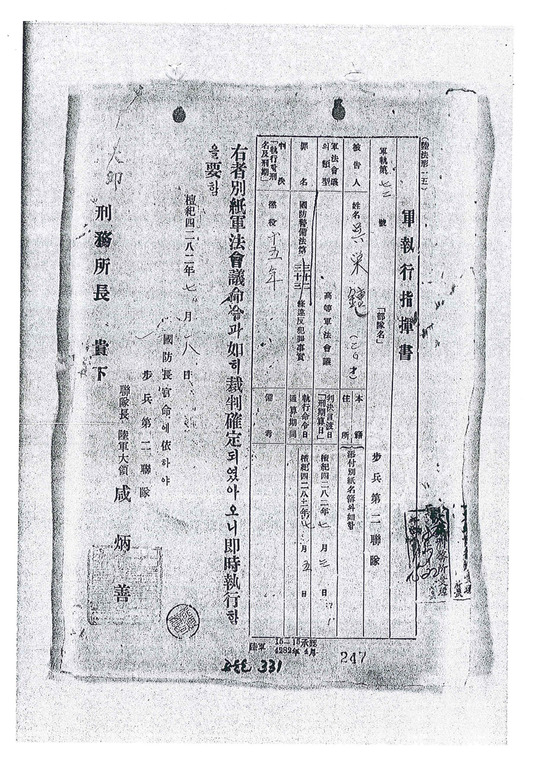 (陸法形一五)
軍執行指揮書
軍執第七二號 「部隊名」 步兵第二聯隊
被告人 姓名 吳榮鎬 (二〇才) 本籍 住所 添付別紙名簿와如함
軍法會議의類型 高等軍法會議 判決言渡日「刑期算日」 檀紀四二八二年七月三日
罪名 國防警備法第三十二 三十三條違反犯罪事實 執行命令日 檀紀四二八二年七月五日
判決 懲役十五年 備考
右者別紙軍法會議命令과如히裁判確定되였아오니卽時執行함
을要함
檀紀四二八二年七月八日
國防長官命에依하야
步兵第二聯隊
聯隊長 陸軍大領 咸炳善
大邱刑務所長 貴下
陸軍
4282年4月
247
331